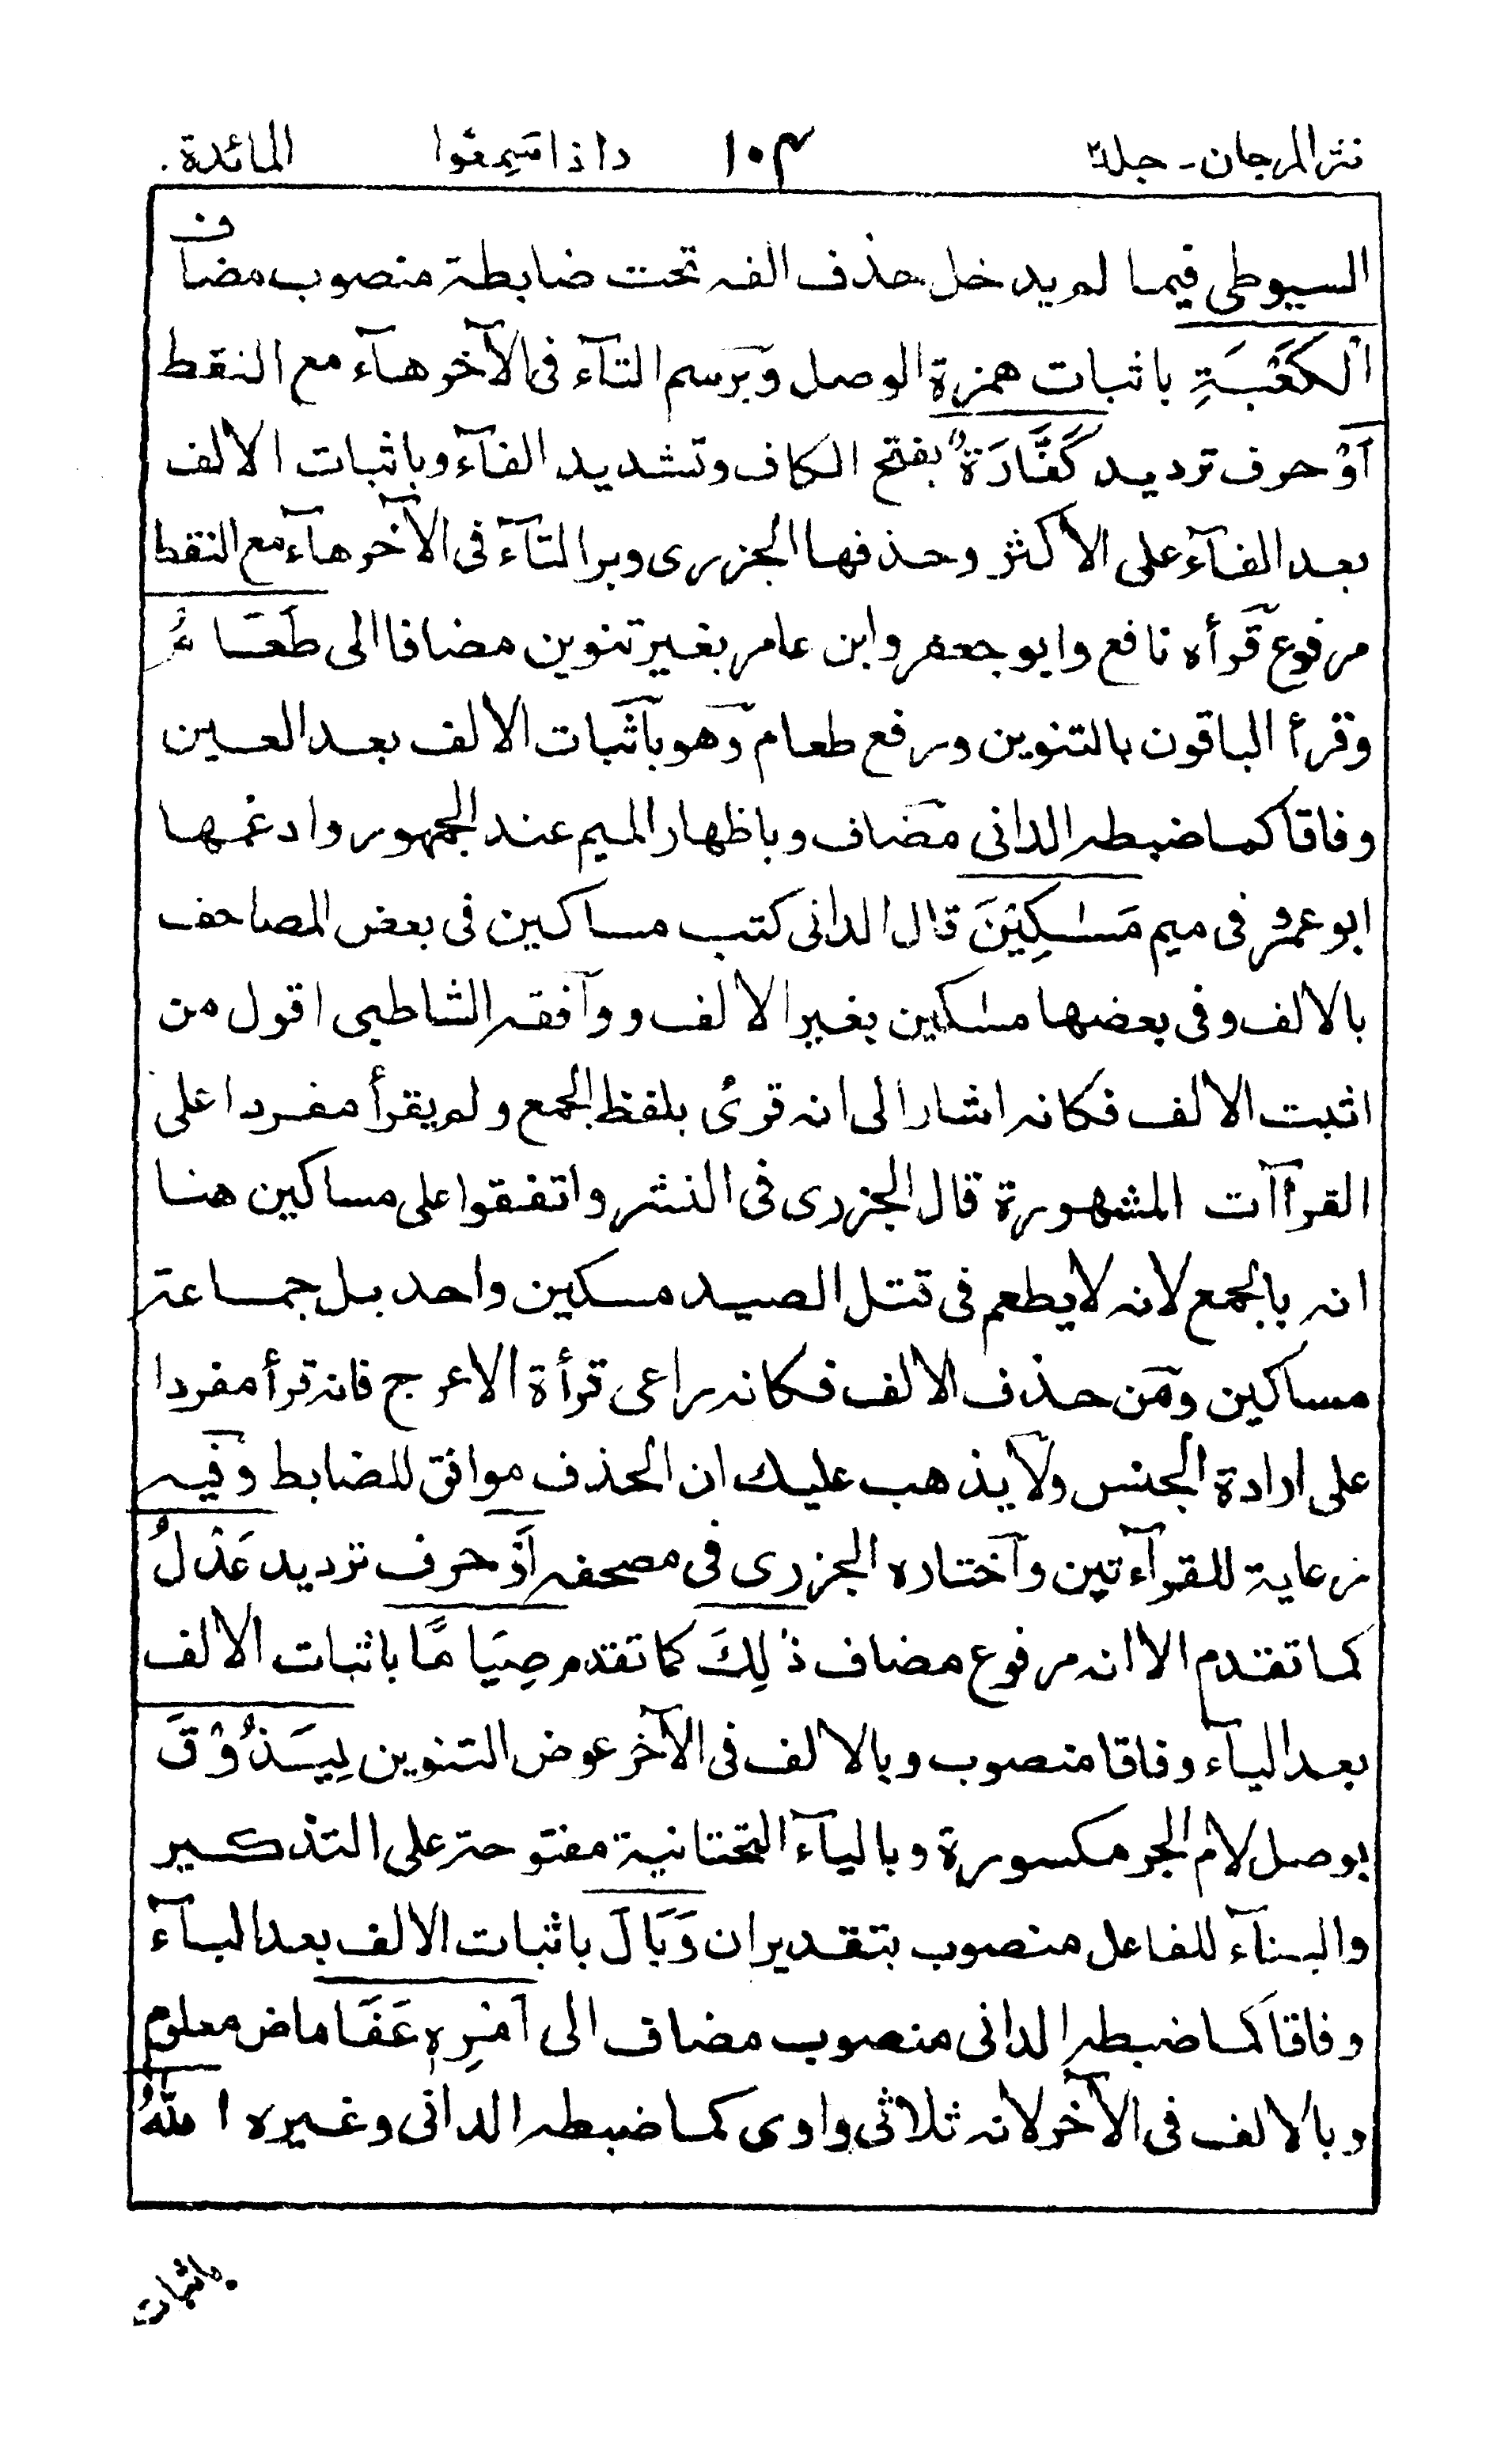 نثر المرجان - جلد ٢ ١٠٣ واذا سَمِعُوا المائدة.
السيوطى فيما لم يدخل حذف الفه تحت ضابطة منصوب مضاف
الْكَعْبَةِ باثبات همزة الوصل وبرسم التآء فى الآخر هآء مع النقط
اَوْ حرف ترديد كَفَّارَةٌ بفتح الكاف وتشديد الفآء وباثبات الالف
بعد الفآء على الاكثر وحذفها الجزرى وبرالتآء فى الآخر هآء مع النقط
مرفوع قرأه نافع وابو جعفر وابن عامر بغير تنوين مضافا الى طَعَامُ
وقرأ الباقون بالتنوين ورفع طعام وهو باثبات الالف بعد العين
وفاقا كما ضبطه الدانى مضاف وباظهار الميم عند الجمهور وادغمها
ابو عمرو فى ميم مَسٰكِيْنَ قال الدانى كتب مساكين فى بعض المصاحف
بالالف وفى بعضها مسٰكين بغير الالف ووافقه الشاطبى اقول من
اثبت الالف فكانه اشار الى انه قرئ بلفظ الجمع ولم يقرأ مفردا على
القراآت المشهورة قال الجزرى فى النشر واتفقوا على مساكين هنا
انه بالجمع لانه لا يطعم فى قتل الصيد مسكين واحد بل جماعة
مساكين ومن حذف الالف فكانه راعى قرأة الاعرج فانه قرأ مفردا
على ارادة الجنس ولا يذهب عليك ان الحذف موافق للضابط وفيه
رعاية للقرآءتين واختاره الجزرى فى مصحفه اَوْ حرف ترديد عَدْلُ
كما تقدم الا انه مرفوع مضاف ذٰلِكَ كما تقدم صِيَامًا باثبات الالف
بعد اليآء وفاقا منصوب وبالالف فى الآخر عوض التنوين لِيَذُوْقَ
بوصل لام الجر مكسورة وباليآء التحتانية مفتوحة على التذكير
والبنآء للفاعل منصوب بتقدير ان وَبَالَ باثبات الالف بعد البآء
وفاقا كما ضبطه الدانى منصوب مضاف الى اَمْرِهٖ عَفَا ماض معلوم
وبالالف فى الآخر لانه ثلاثى واوى كما ضبطه الدانى وغيره اللّٰهُ
باثبات